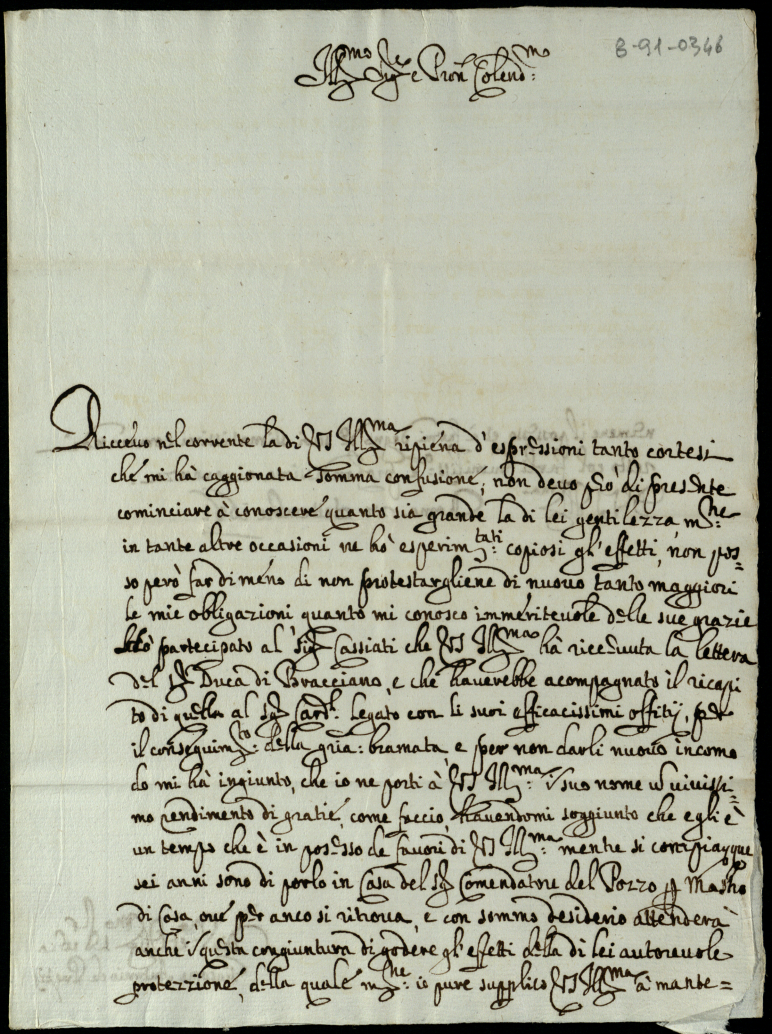 8-91-0346
Ill.mo Sig.re e Pron Colend.mo
Ricevo nel corrente la di VS Ill.ma ripiena d'espressioni tanto cortesi
che mi hà caggionata somma confusione; non devo però di presente
cominciare à conoscere quanto sia grande la di lei gentilezza, m.ne
in tante altre occasioni ne hò esperim.tati copiosi gl'effetti, non pos=
so però far di meno di non protestargliene di nuovo tanto maggiori
le mie obligazioni quanto mi conosco immeritevole delle sue grazie
Hò partecipato al Sig. Cassiati che VS Ill.ma hà ricevuta la lettera
del Sig. Duca di Bracciano, e che haverebbe acompagnato il ricapi
to di quella al Sig. Card. Legato con li suoi efficacissimi offitij, per
il conseguim.to della gria: bramata, e per non darli nuovo incomo
do mi hà ingiunto, che io ne porti à VS Ill.ma: suo nome vivissi=
mo rendimento di gratie, come faccio, havendomi soggiunto che egli è
un tempo che è in possesso de favori di VS Ill.ma: mentre si compiacque
sei anni sono di porlo in Casa del Sig. Comendatore del Pozzo p Mastro
di Casa, ove per anco si ritrova, e con sommo desiderio attenderà
anche questa congiuntura di godere gl'effetti della di lei autorevole
protezzione, della quale m.ne: io pure supplico VS Ill.ma à mante=